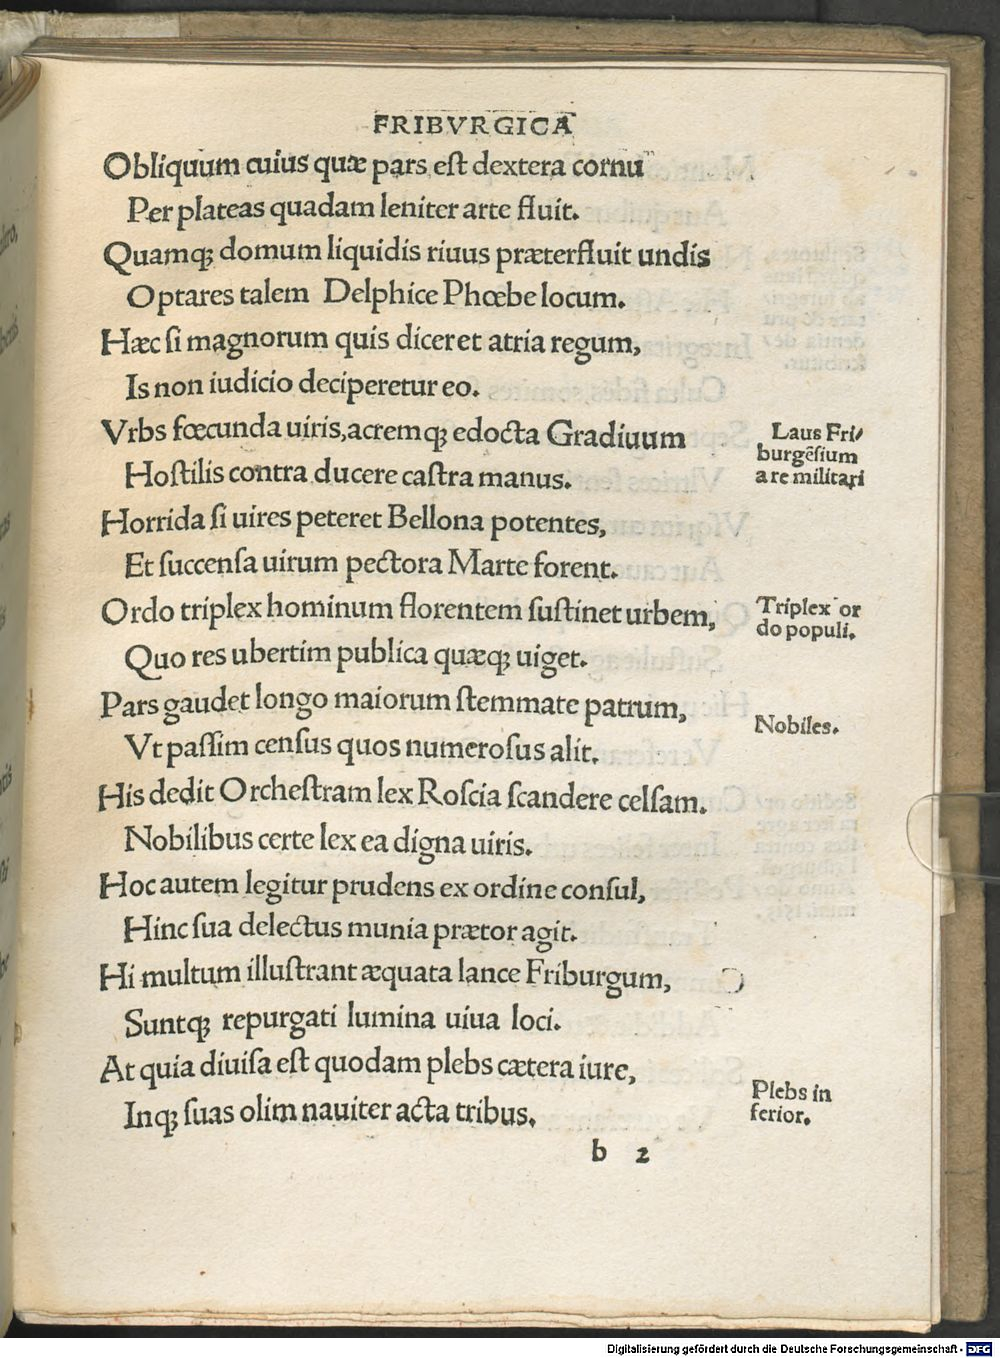 FRIBVRGICA
Obliquum cuius quæ pars est dextera cornu
Per plateas quadam leniter arte fluit.
Quamq; domum liquidis riuus præterfluit undis
Optares talem Delphice Phœbe locum.
Hæc si magnorum quis diceret atria regum,
Is non iudicio deciperetur eo.
Vrbs fœcunda uiris, acremq; edocta Gradiuum
Hostilis contra ducere castra manus.
Laus Fri/
burgẽsium
a re militari
Horrida si uires peteret Bellona potentes,
Et succensa uirum pectora Marte forent.
Ordo triplex hominum florentem sustinet urbem,
Quo res ubertim publica quæq; uiget.
Triplex or
do populi.
Pars gaudet longo maiorum stemmate patrum,
Vt passim census quos numerosus alit.
Nobiles.
His dedit Orchestram lex Roscia scandere celsam.
Nobilibus certe lex ea digna uiris.
Hoc autem legitur prudens ex ordine consul,
Hinc sua delectus munia prætor agit.
Hi multum illustrant æquata lance Friburgum,
Suntq; repurgati lumina uiua loci.
At quia diuisa est quodam plebs cætera iure,
Inq; suas olim nauiter acta tribus.
Plebs in
ferior.
b 2
Digitalisierung gefördert durch die Deutsche Forschungsgemeinschaft - DFG